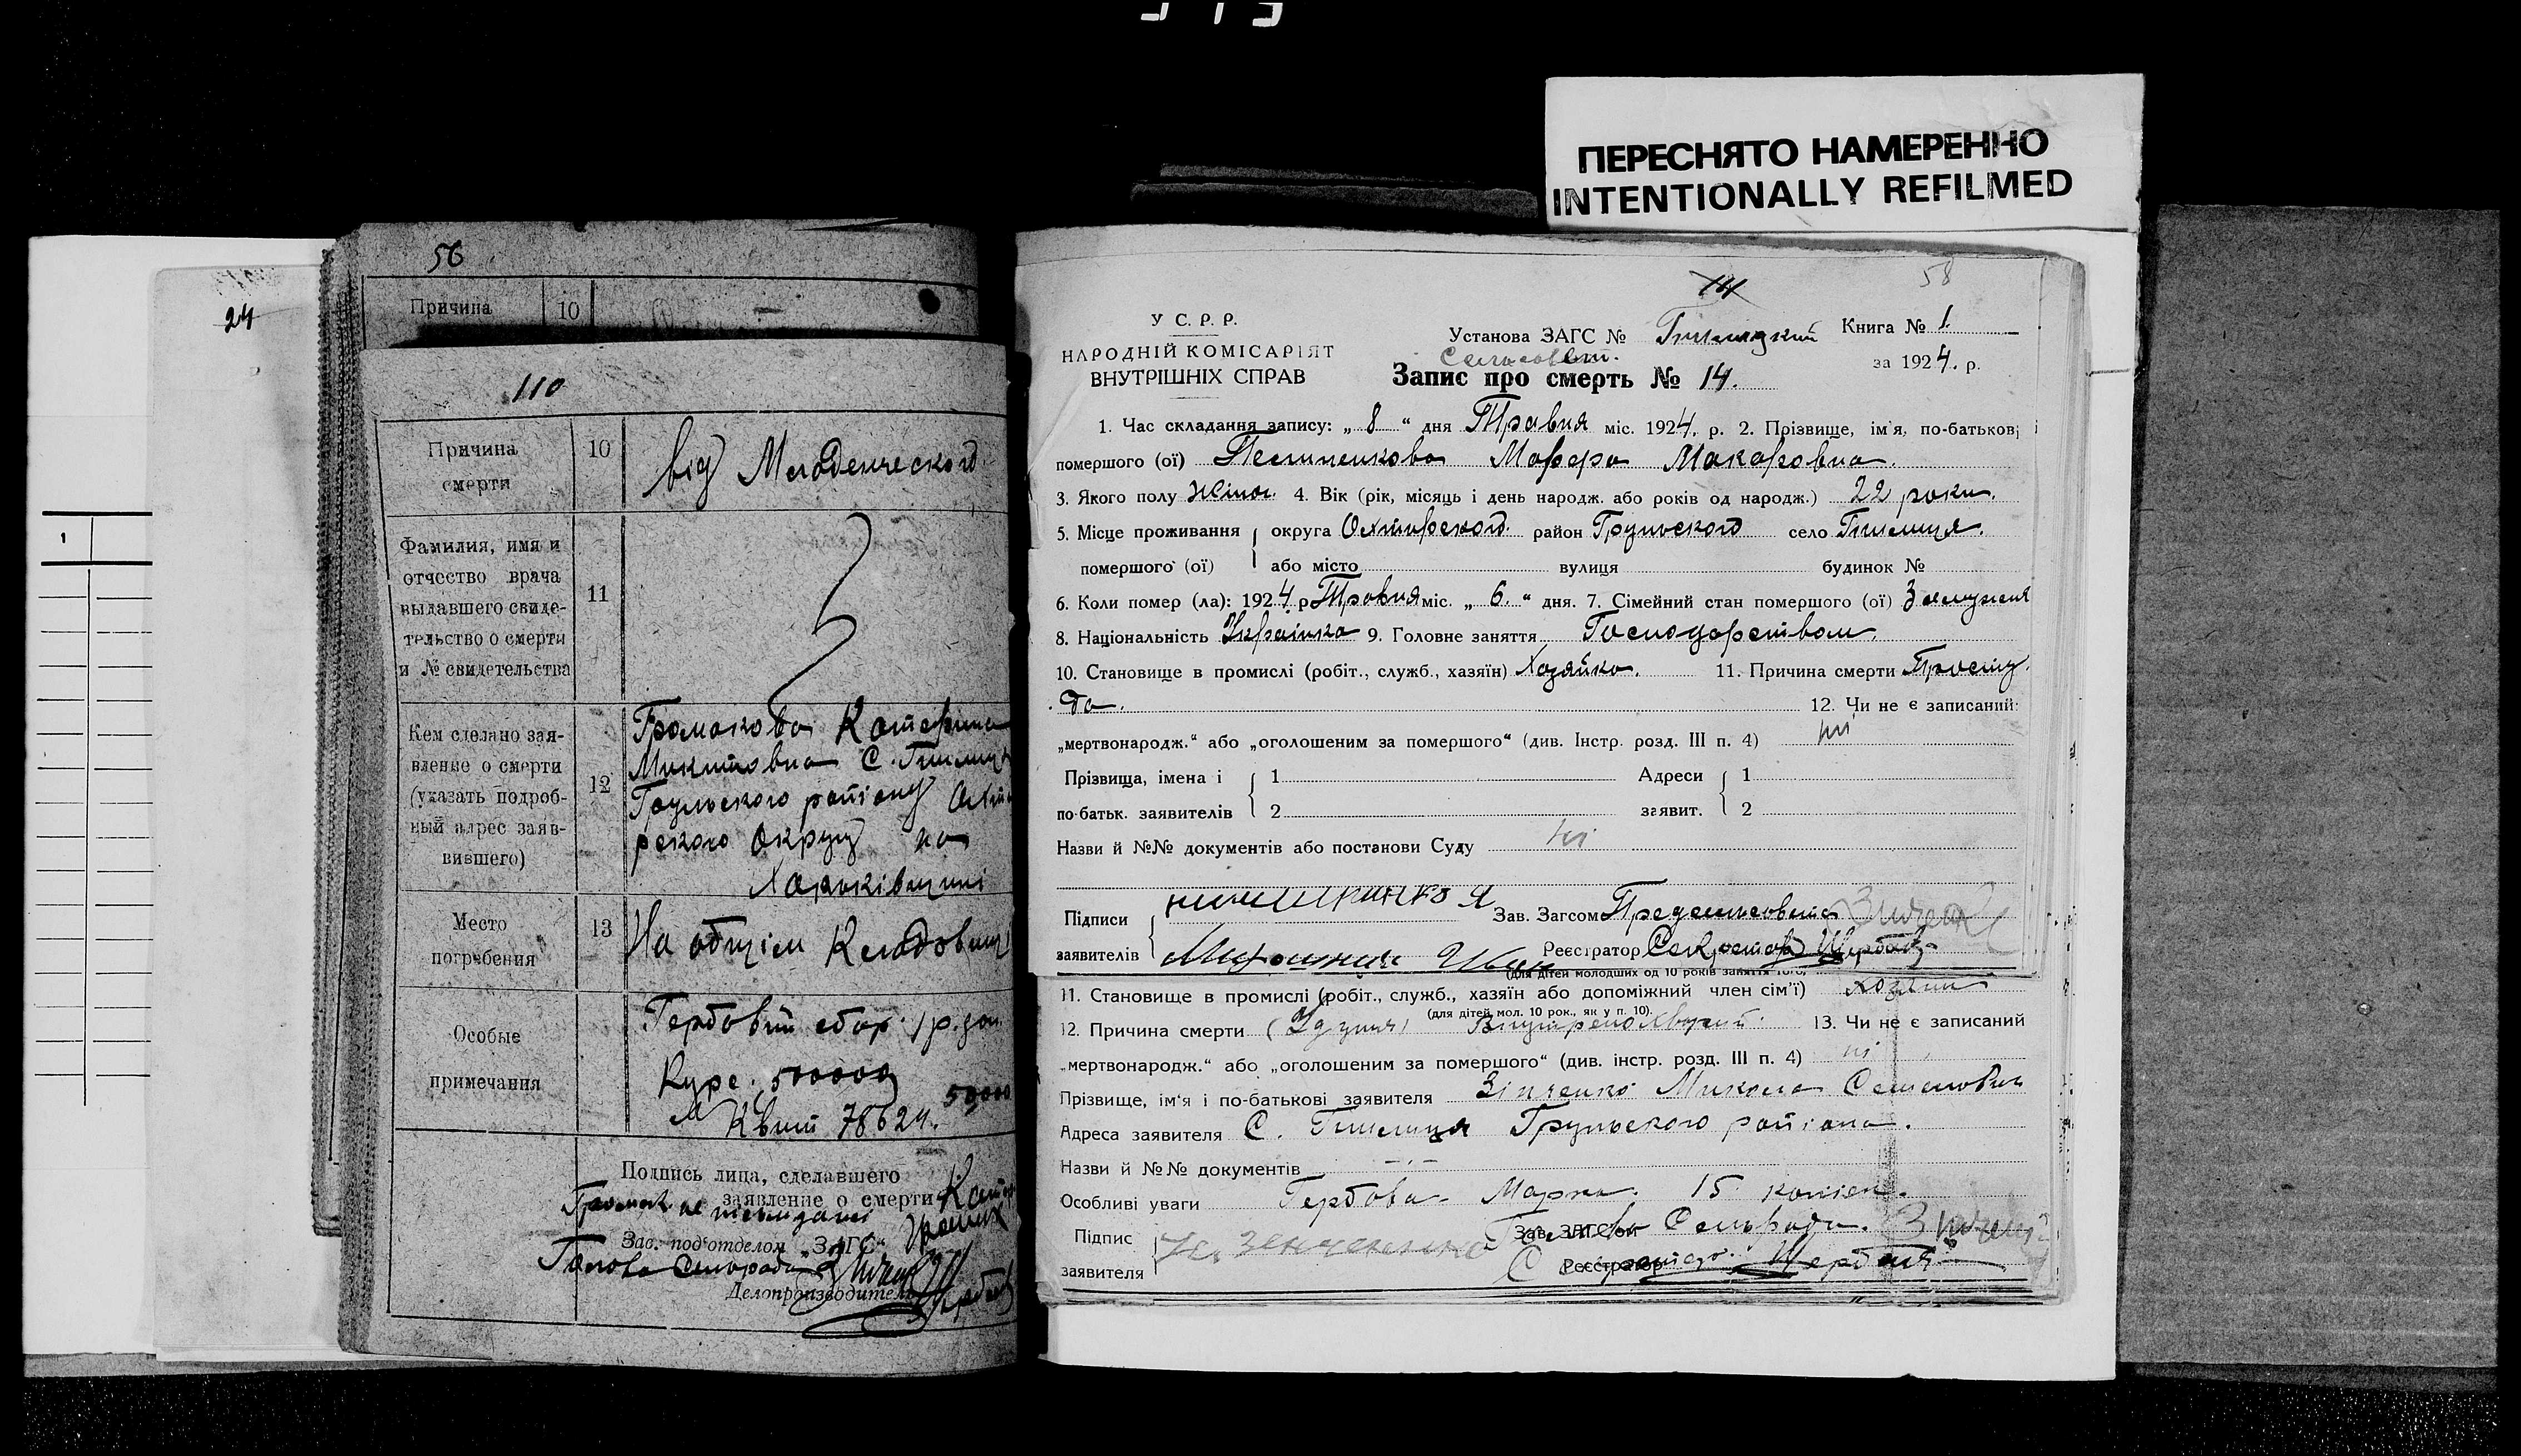 ПЕРЕСНЯТО НАМЕРЕННО
INTENTIONALLY REFILMED
24
1
56
Причина 10
110
Причина смерти 10 від Младенческого
Фамилия, имя и отчество врача выдавшего свидетельство о смерти и № свидетельства 11
Кем сделано заявление о смерти (указать подробный адрес заявившего) 12
Громакова Катерина
Микитовна С.
Грунського району
рского Округу на
Харьківщині
Место погребения 13 На общім Кладовищі
Особые примечания Гербовий сбор 1 р. зол.
Курс. 500000
Квит 78624. 50000
Подпись лица, сделавшего
заявление о смерти
Зав. под'отделом „ЗАГС"
Голова Сельради
Делопроизводитель
14 58
У С. Р. Р.
НАРОДНІЙ КОМІСАРІЯТ
ВНУТРІШНІХ СПРАВ
Установа ЗАГС № Книга № 1
Сельсовет. за 1924. р.
Запис про смерть № 14.
1. Час складання запису: „ 8 " дня Травня міс. 1924. р. 2. Прізвище, ім'я, по-батькові
помершого (ої) Макаровна.
3. Якого полу жіноч. 4. Вік (рік, місяць і день народж. або років од народж.) 22 роки.
5. Місце проживання округа Охтирского район Грунського село
помершого (ої) або місто вулиця будинок №
6. Коли помер (ла): 1924 р Травня міс. „ 6. " дня. 7. Сімейний стан помершого (ої) Замужня
8. Національність Українка 9. Головне заняття Господарством.
10. Становище в промислі (робіт., служб., хазяїн) Хозяйка. 11. Причина смерти Просту
да. 12. Чи не є записаний:
„мертвонародж." або „оголошеним за помершого" (див. Інстр. розд. III п. 4) ні
Прізвища, імена і 1 Адреси 1
по-батьк. заявителів 2 заявит. 2
Назви й №№ документів або постанови Суду ні
Підписи Зав. Загсом Предсельсовета
заявителів Реєстратор Секретар Щербак
(для дітей молодших од 10 років заняття того,
11. Становище в промислі (робіт., служб., хазяїн або допоміжний член сім'ї) хозяин
(для дітей мол. 10 рок., як у п. 10).
12. Причина смерти 13. Чи не є записаний
„мертвонародж." або „оголошеним за помершого" (див. інстр. розд. III п. 4) ні
Прізвище, ім'я і по-батькові заявителя Зінченко Микола Семенович
Адреса заявителя С. Грунського району.
Назви й №№ документів
Особливі уваги Гербова Марка. 15 копієк.
Підпис Зав. ЗАГСом Голова Сельради.
заявителя Реєстратор Щербак